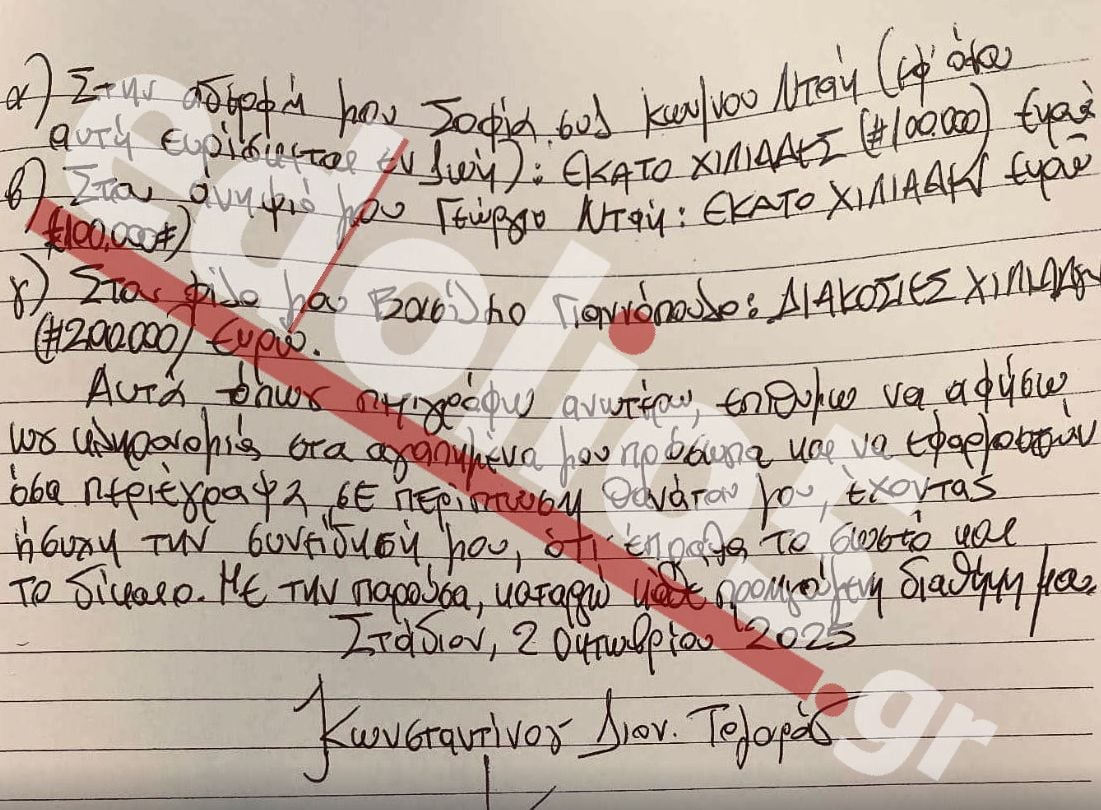 α) Στην αδερφή μου Σοφία συζ. Κων/νου Νταή (εφ' όσον
αυτή ευρίσκεται εν ζωή): ΕΚΑΤΟ ΧΙΛΙΑΔΕΣ (#100.000) Ευρώ
β) Στον ανηψιό μου Γεώργιο Νταή: ΕΚΑΤΟ ΧΙΛΙΑΔΕΣ Ευρώ
(#100.000#)
γ) Στον φίλο μου Βασίλειο Γιαννόπουλο: ΔΙΑΚΟΣΙΕΣ ΧΙΛΙΑΔΕΣ
(#200.000) Ευρώ.
Αυτά όπως περιγράφω ανωτέρω, επιθυμώ να αφήσω
ως κληρονομιά στα αγαπημένα μου πρόσωπα και να εφαρμοστούν
όσα περιέγραψα, σε περίπτωση θανάτου μου, έχοντας
ήσυχη την συνείδησή μου, ότι έπραξα το σωστό και
το δίκαιο. Με την παρούσα, καταργώ κάθε προηγούμενη διαθήκη μου.
Στάδιον, 2 Οκτωβρίου 2025
Κωνσταντίνος Διον. Τολοράς
edolio5.gr